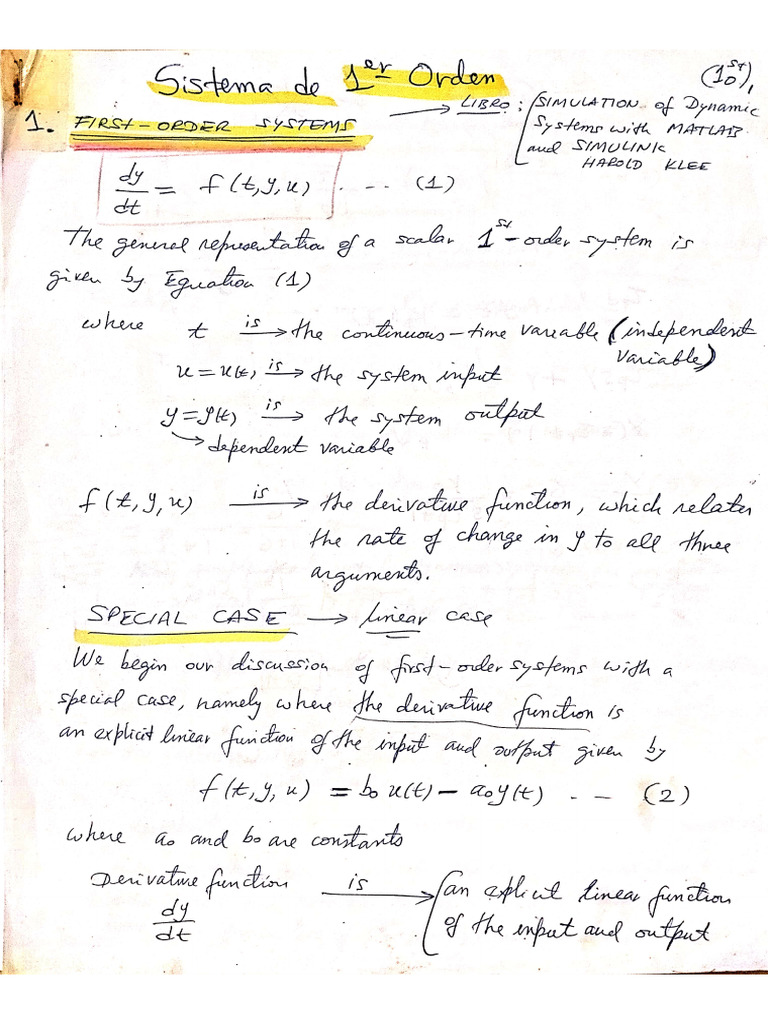 Sistema de 1er Orden
(1o st),
1. FIRST-ORDER SYSTEMS → LIBRO: SIMULATION of Dynamic
Systems with MATLAB
and SIMULINK
HAROLD KLEE
dy/dt = f(t,y,u) ... (1)
The general representation of a scalar 1st-order system is
given by Equation (1)
where t is→ the continuous-time variable (independent
variable)
u = u(t) is→ the system input
y = y(t) is→ the system output
→ dependent variable
f(t,y,u) is→ the derivative function, which relates
the rate of change in y to all three
arguments.
SPECIAL CASE → linear case
We begin our discussion of first-order systems with a
special case, namely where the derivative function is
an explicit linear function of the input and output given by
f(t,y,u) = b0 u(t) - a0 y(t) ... (2)
where a0 and b0 are constants
Derivative function is→ an explicit linear function
dy/dt of the input and output